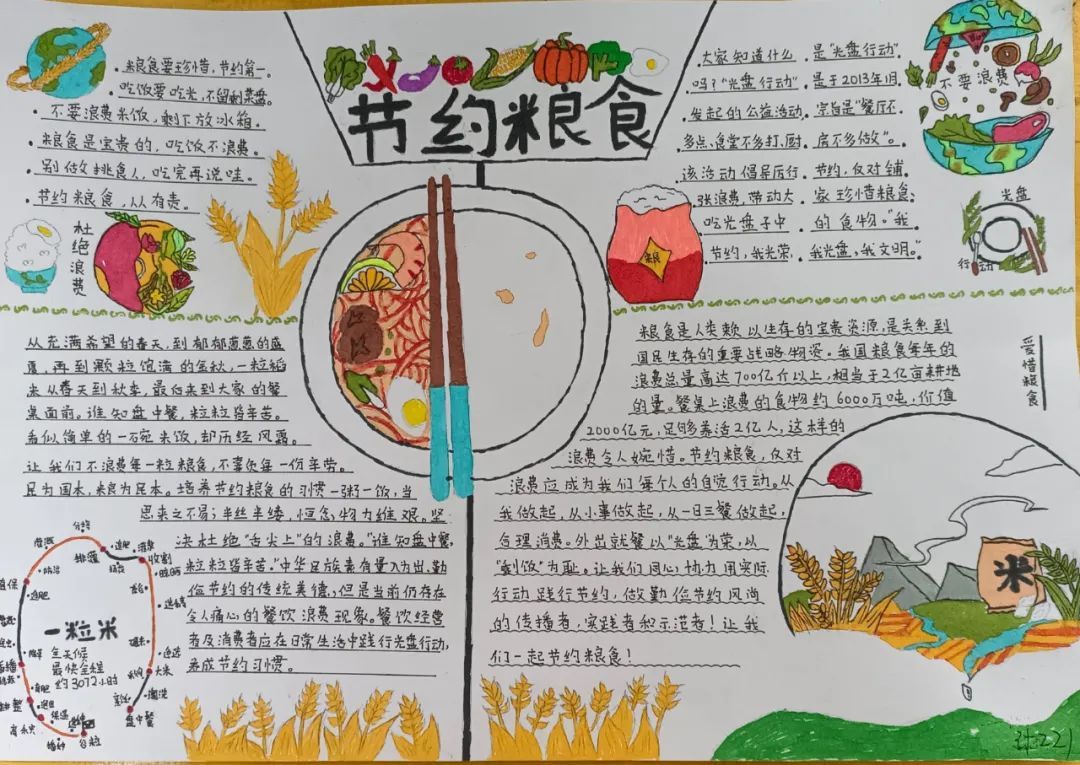 节约粮食
粮食要珍惜,节约第一。
吃饭要吃光,不留剩菜盘。
不要浪费米饭,剩下放冰箱。
粮食是宝贵的,吃饭不浪费。
别做挑食人,吃完再说哇。
节约粮食,从人有责。
杜绝浪费
大家知道什么是“光盘行动”
吗?“光盘行动”是于2013年1月
发起的公益活动,宗旨是“餐厅不
多点、食堂不多打、厨房不多做”。
该活动倡导厉行节约,反对铺
张浪费,带动大家珍惜粮食,
吃光盘子中的食物。“我
节约,我光荣,我光盘,我文明。”
不要浪费
光盘
行动
粮
从充满希望的春天,到郁郁葱葱的盛
夏,再到颗粒饱满的金秋,一粒稻
米从春天到秋季,最后来到大家的餐
桌面前。谁知盘中餐,粒粒皆辛苦。
看似简单的一碗米饭,却历经风霜。
让我们不浪费每一粒粮食,不辜负每一份辛劳。
民为国本,粮为民本。培养节约粮食的习惯一粥一饭,当
思来之不易;半丝半缕,恒念物力维艰。坚
决杜绝“舌尖上”的浪费。“谁知盘中餐,
粒粒皆辛苦。”中华民族素有量入为出,勤
俭节约的传统美德,但是当前仍存在
令人痛心的餐饮浪费现象。餐饮经营
者及消费者应在日常生活中践行光盘行动,
养成节约习惯。
粮食是人类赖以生存的宝贵资源,是关系到
国民生存的重要战略物资。我国粮食每年的
浪费总量高达700亿斤以上,相当于2亿亩耕地
的量。餐桌上浪费的食物约6000万吨,价值
2000亿元,足够养活2亿人,这样的
浪费令人惋惜。节约粮食,反对
浪费应成为我们每个人的自觉行动。从
我做起,从小事做起,从一日三餐做起,
合理消费。外出就餐以“光盘”为荣,以
“剩饭”为耻。让我们同心协力用实际
行动践行节约,做勤俭节约风尚
的传播者,实践者和示范者!让我
们一起节约粮食!
爱惜粮食
米
一粒米
全天候
最快全程
约3072小时
分蘖
灌溉
排灌
追肥
收割
防治
大米
盘中餐
播种
谷粒
保温